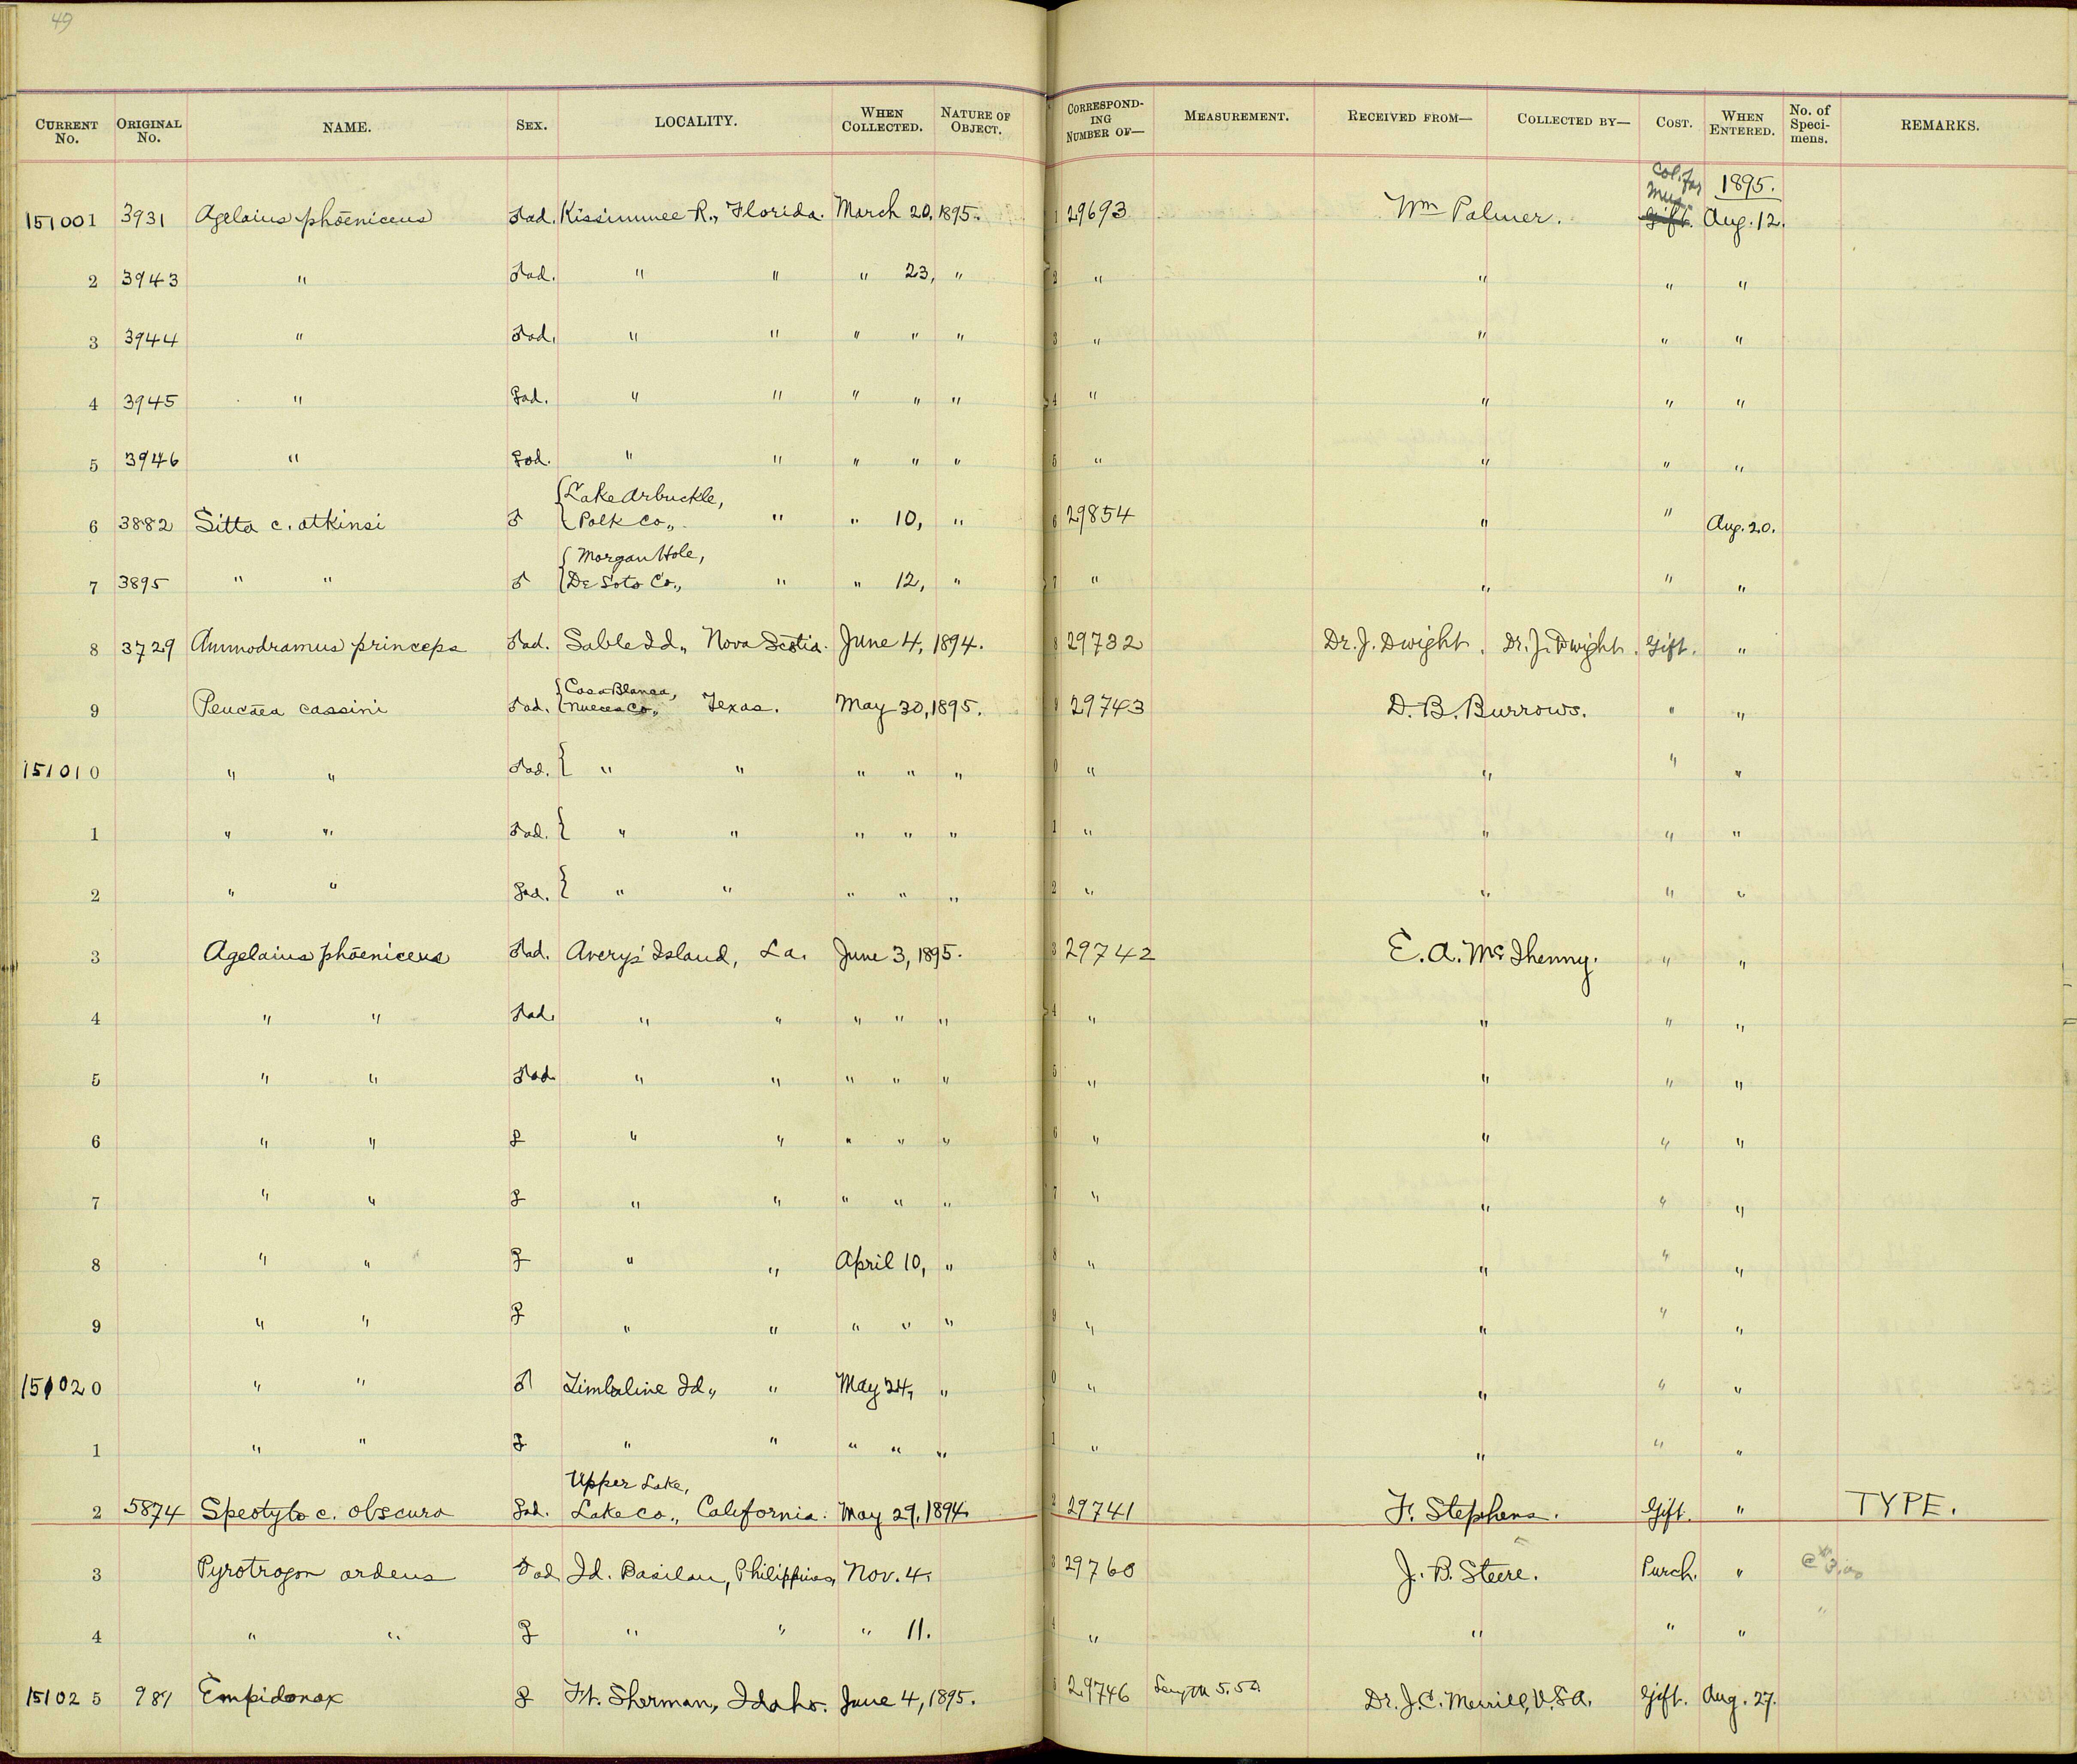 49
CURRENT No. ORIGINAL No. NAME. SEX. LOCALITY. WHEN COLLECTED. NATURE OF OBJECT. CORRESPONDING NUMBER OF— MEASUREMENT. RECEIVED FROM— COLLECTED BY— COST. WHEN ENTERED. No. of Specimens. REMARKS.
Col. for Mus. 1895.
151001 3931 Agelaius phœniceus ♂ad. Kissimmee R., Florida. March 20, 1895. 1 29693 Wm Palmer. Gift. Aug. 12.
2 3943 " ♂ad. " " " 23, " 2 " " " "
3 3944 " ♂ad. " " " " " 3 " " " "
4 3945 " ♀ad. " " " " " 4 " " " "
5 3946 " ♀ad. " " " " " 5 " " " "
{Lake Arbuckle,
6 3882 Sitta c. atkinsi ♂ {Polk Co., " " 10, " 6 29854 " " Aug. 20.
{Morgan Hole,
7 3895 " " ♂ {De Soto Co., " " 12, " 7 " " " "
8 3729 Ammodramus princeps ♂ad. Sable Id., Nova Scotia. June 4, 1894. 8 29732 Dr. J. Dwight. Dr. J. Dwight. Gift. "
{Casa Blanca,
9 Peucæa cassini ♂ad. {Nueces Co., Texas. May 30, 1895. 9 29743 D. B. Burrows. " "
151010 " " ♂ad. { " " " " " 0 " " " "
1 " " ♂ad. { " " " " " 1 " " " "
2 " " ♀ad. { " " " " " 2 " " " "
3 Agelaius phœniceus ♂ad. Avery's Island, La. June 3, 1895. 3 29742 E. A. McIlhenny. " "
4 " " ♂ad. " " " " " 4 " " " "
5 " " ♂ad. " " " " " 5 " " " "
6 " " ♀ " " " " " 6 " " " "
7 " " ♀ " " " " " 7 " " " "
8 " " ♀ " " April 10, " 8 " " " "
9 " " ♀ " " " " " 9 " " " "
151020 " " ♂ Timbaline Id., " May 24, " 0 " " " "
1 " " ♀ " " " " " 1 " " " "
Upper Lake,
2 5874 Speotyto c. obscura ♀ad. Lake Co., California. May 29, 1894. 2 29741 F. Stephens. Gift. " TYPE.
3 Pyrotrogon ardens ♂ad. Id. Basilan, Philippines, Nov. 4. 3 29760 J. B. Steere. Purch. " @ $3.00
4 " " ♀ " " " 11. 4 " " " " "
151025 987 Empidonax ♀ Ft. Sherman, Idaho. June 4, 1895. 5 29746 Length 5.50. Dr. J. C. Merrill, U.S.A. Gift. Aug. 27.